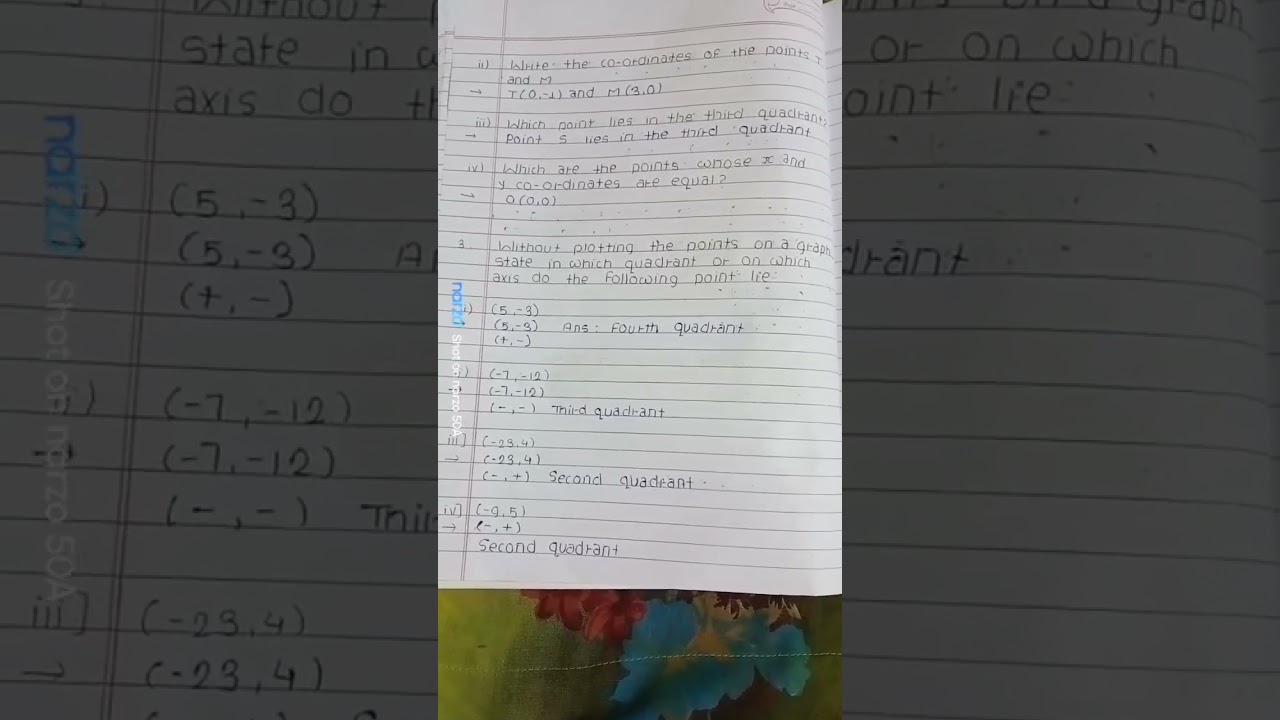 ii) Write the co-ordinates of the points T
and M
→ T(0,-1) and M(3,0)
iii) Which point lies in the third quadrant?
→ Point S lies in the third quadrant
iv) Which are the points whose x and
y co-ordinates are equal?
→ O(0,0)
3. Without plotting the points on a graph
state in which quadrant or on which
axis do the following point lie:
i) (5,-3)
(5,-3) Ans: Fourth quadrant
(+,-)
ii) (-7,-12)
→ (-7,-12)
(-,-) Third quadrant
iii] (-23,4)
→ (-23,4)
(-,+) Second quadrant
iv] (-9,5)
→ (-,+)
Second quadrant
narzo Shot on narzo 50A